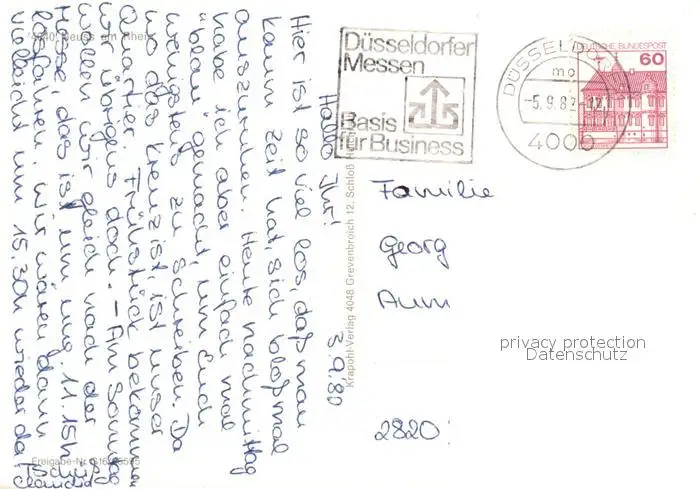 3.9.80
Hallo Ihr!
Hier ist so viel los, daß man
kaum Zeit hat, sich bloß mal
auszuruhen. Heute nachmittag
habe ich aber einfach mal
"blau" gemacht, um Euch
wenigstens zu schreiben. Da
wo das Kreuz ist, ist unser
Quartier. Frühstück bekommen
wir übrigens doch. – Am Sonntag
wollen wir gleich nach der
Messe, das ist um ung. 11.15h
losfahren. Wir wären dann
vielleicht um 15.30h wieder da.
Tschüß
Claudia
4040 Neuss am Rhein
Freigabe-Nr.
Krapohl-Verlag 4048 Grevenbroich 12, Schloß
Düsseldorfer
Messen
Basis
für Business
DÜSSELDO
mo
-5.9.8
-12
400
DEUTSCHE BUNDESPOST
60
Familie
Georg
2820
privacy protection
Datenschutz